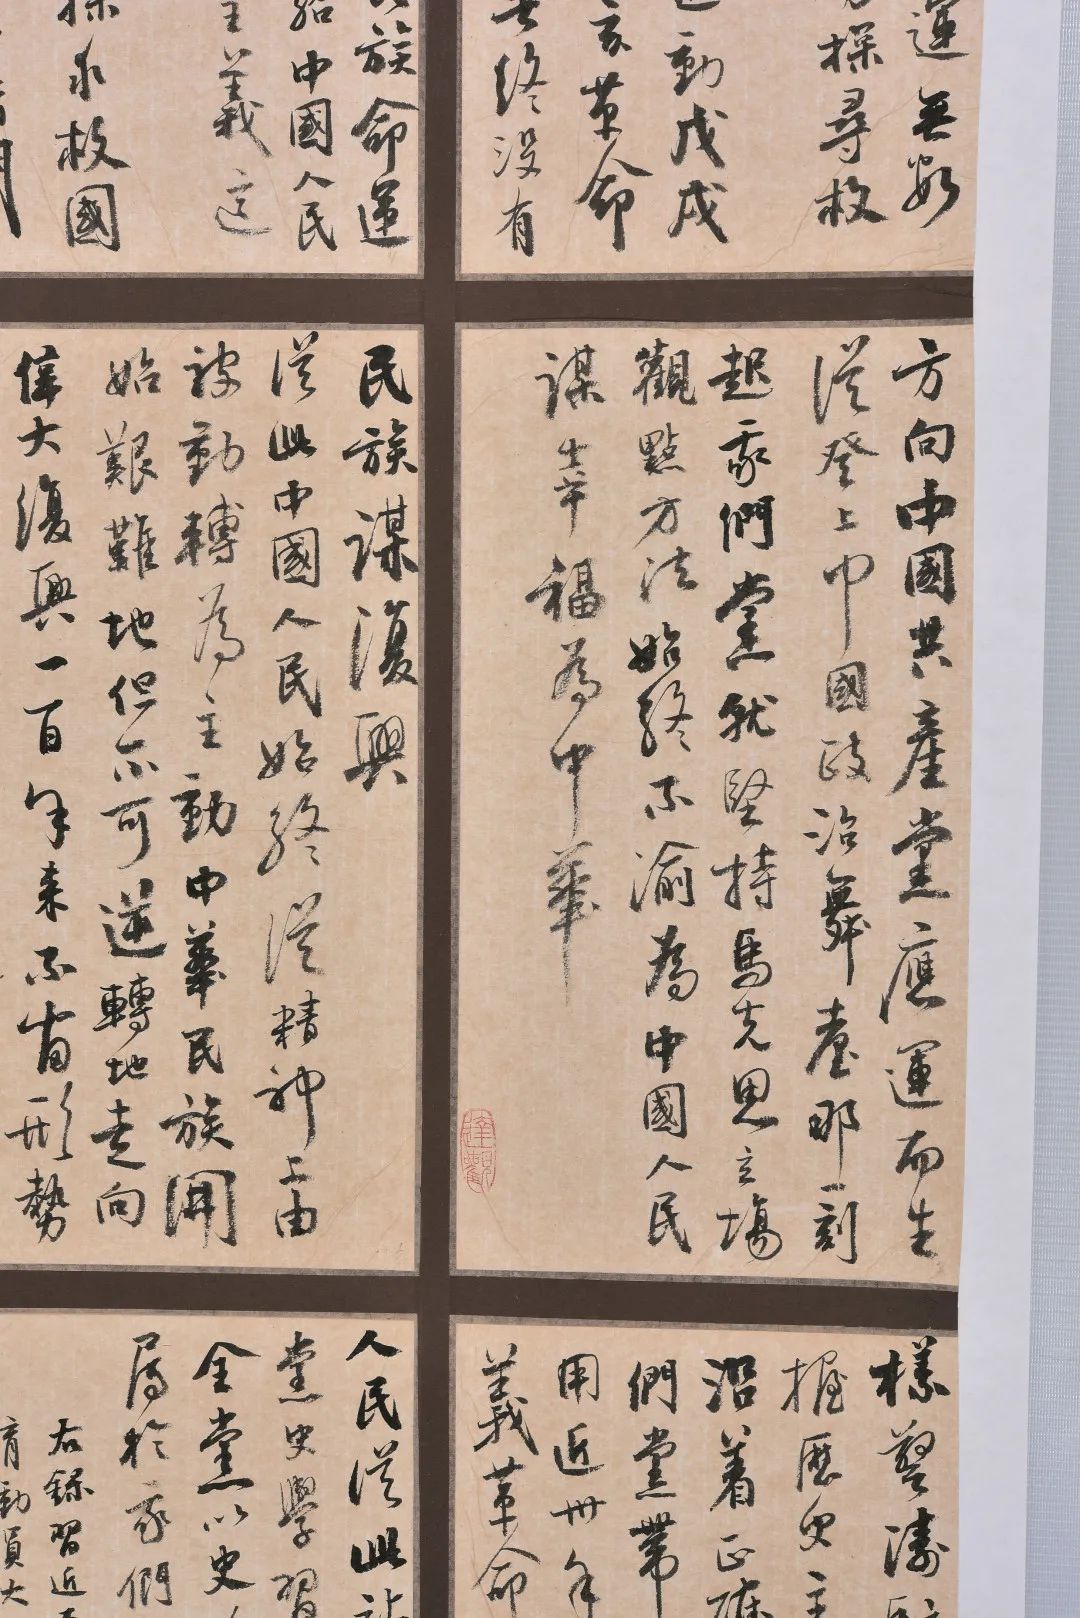 運無數
探尋救
動戊戌
亥革命
終沒有
族命運
給中國人民
主義這
探求救國
方向中國共產黨應運而生
從登上中國政治舞臺那一刻
起我們黨就堅持馬克思立場
觀點方法始終不渝為中國人民
謀幸福為中華
達觀
民族謀復興
從此中國人民始終從精神上由
被動轉為主動中華民族開
始艱難地但不可逆轉地走向
偉大復興一百年來不管形勢
樣驚濤
握歷史主
沿着正確
們黨帶
用近卅年
義革命
人民從此站
黨史學習
全黨以史
屬於我們
右錄習近
育動員大